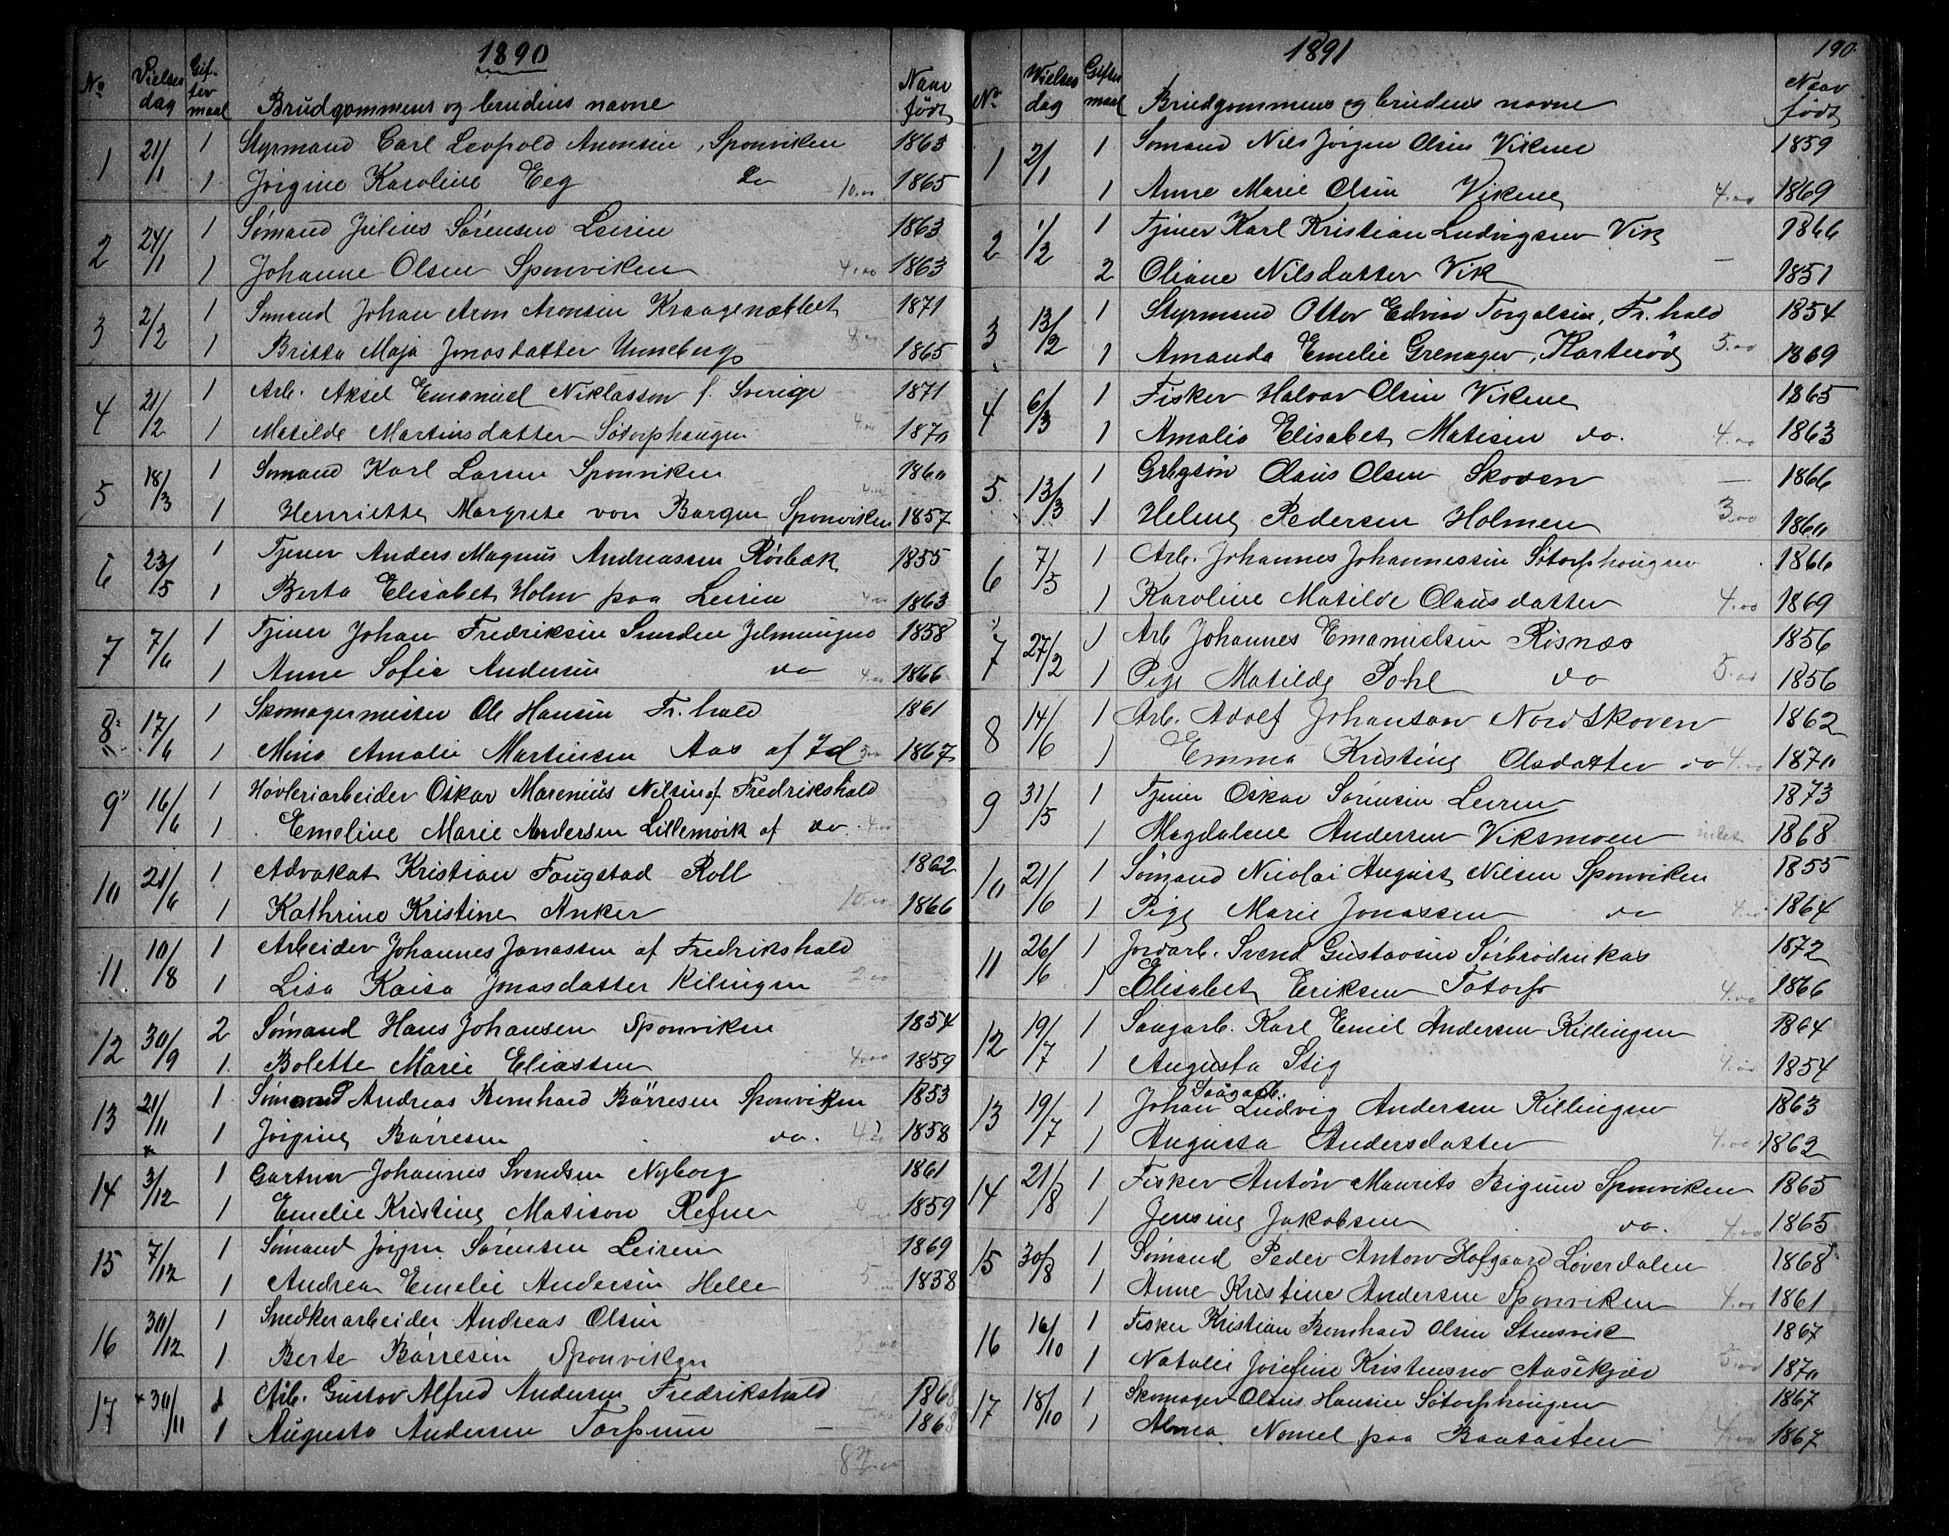 1890
No Vielses dag Giftermaal Brudgommens og brudens navne Naar født
1 21/1 1 Styrmand Carl Leopold Aronsen, Sponviken 1863
1 Jørgine Karoline Eeg Do 10.00 1865
2 24/1 1 Sømand Julius Sørensen Leiren 1863
1 Johanne Olsen Sponviken 4.00 1863
3 2/2 1 Sømand Johan Aron Aronsen Kraagenæbbet 1871
1 Britta Maja Jonasdatter Unneberg 8.00 1865
4 21/2 1 Arb. Aksel Emanuel Niklasson f. Sverige 1871
1 Matilde Martinsdatter Sötorphaugen 4.00 1870
5 18/3 1 Sømand Karl Larsen Sponviken 1860
1 Henriette Margrete von Bargen Sponviken 4.00 1857
6 23/5 1 Tjener Anders Magnus Andreassen Rösbæk 1855
1 Berta Elisabet Holm paa Leiren 4.00 1863
7 7/6 1 Tjener Johan Fredriksen 1858
1 Anne Sofie Andersen do 4.00 1866
8 17/6 1 Skomagermester Ole Hansen Fr.hald 1861
1 Mina Amalie Martinsen Aas af Id 1867
9 16/6 1 Høvleriarbeider Oskar Marenius Nilsen af Fredrikshald
1 Emeline Marie Andersen Lillemoik af do. 4.00
10 21/6 1 Advokat Kristian Fougstad Roll 1862
1 Kathrine Kristine Anker 10.00 1866
11 10/8 1 Arbeider Johannes Jonassen af Fredrikshald
1 Lisa Kaisa Jonasdatter Kilingen 2.00
12 30/9 2 Sømand Hans Johansen Sponviken 1854
1 Bolette Marie Eliassen 4.00 1859
13 21/11 1 Sømand Andreas Bernhard Børresen Sponviken 1853
1 Jørgine Børresen do. 1858
14 3/12 1 Gartner Johannes Svendsen Nyborg 1861
1 Emelie Kristine Matison Refne 1859
15 7/12 1 Sømand Jørgen Sørensen Leiren 1869
1 Andrea Emelie Andersen Helle 5 1858
16 30/12 1 Snedkerarbeider Andreas Olsen
1 Berte Børresen Sponviken 5.00
17 30/11 1 Arb. Gustav Alfred Andersen Fredrikshald 1868
1 Augusta Andersen Torpum — 1868
1891 190
No Vielses dag Giftermaal Brudgommens og brudens navne Naar født
1 2/1 1 Sømand Nils Jørgen Olsen Vikene 1859
1 Anne Marie Olsen Vikene 4.00 1869
2 1/2 1 Tjener Karl Kristian Ludvigsen Vik 1866
2 Oliane Nilsdatter Vik — 1851
3 13/2 1 Styrmand Otto Edvin Torgalsen, Fr.hald 1854
1 Amanda Emelie Grenager, Karterød 5.00 1869
4 6/3 1 Fisker Halvor Olsen Vikene 1865
1 Amalia Elisabet Matisen do. 4.00 1863
5 13/3 1 Grbgsøn Claus Olsen Skoven — 1866
1 Helene Pedersen Holmen 3.00 1860
6 7/5 1 Arb. Johannes Johannessen Sötorphougen 1866
1 Karoline Matilde Clausdatter 4.00 1869
7 27/2 1 Arb Johannes Emanuelsen Risnæs 1856
1 Pige Matilde Pohl do 5.00 1856
8 14/6 1 Arb. Adolf Johanson Nordskoven 1862
1 Emma Kristine Olsdatter do 4.00 1870
9 31/5 1 Tjener Oskar Sørensen Leiren 1873
1 Magdalene Andersen Viksmoen intet 1868
10 21/6 1 Sømand Nicolai August Nilsen Sponviken 1855
1 Pige Marie Jonassen do 4.00 1864
11 26/6 1 Jordarb. Svend Gustavsen 1872
1 Elisabet Eriksen Totorp 4.00 1866
12 19/7 1 Saugarb. Karl Emil Andersen Killingen 1864
1 Augusta Stig 4.00 1854
Saugarb.
13 19/7 1 Johan Ludvig Andersen Killingen 1863
1 Augusta Andersdatter 4.00 1862
14 21/8 1 Fisker Antøn Maurits Bigum Sponviken 1865
1 Jensine Jakobsen do. 4.00 1865
15 30/8 1 Sømand Peder Anton Hofgaard Løverdalen 1868
1 Anne Kristine Andersen Sponviken 4.00 1861
16 16/10 1 Fisker Kristian Bernhard Olsen Stensvik 1867
1 Natalie Josefine Kristensen Aasekjær 5.00 1870
17 18/10 1 Skomager Claus Hansen Sötorphougen 1867
1 Alma Nomel paa Baastösten 4.00 1867